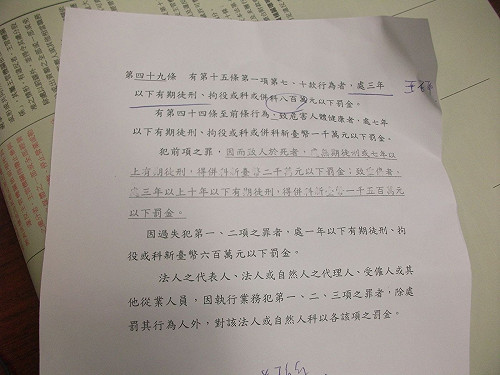 第四十九條　有第十五條第一項第七、十款行為者，處三年
以下有期徒刑、拘役或科或併科八百萬元以下罰金。
有第四十四條至前條行為，致危害人體健康者，處七年
以下有期徒刑、拘役或科或併科新臺幣一千萬元以下罰金。
犯前項之罪，因而致人於死者，處無期徒刑或七年以
上有期徒刑，得併科新臺幣二千萬元以下罰金；致重傷者，
處三年以上十年以下有期徒刑，得併科新臺幣一千五百萬元
以下罰金。
因過失犯第一、二項之罪者，處一年以下有期徒刑、拘
役或科新臺幣六百萬元以下罰金。
法人之代表人、法人或自然人之代理人、受僱人或其
他從業人員，因執行業務犯第一、二、三項之罪者，除處
罰其行為人外，對該法人或自然人科以各該項之罰金。